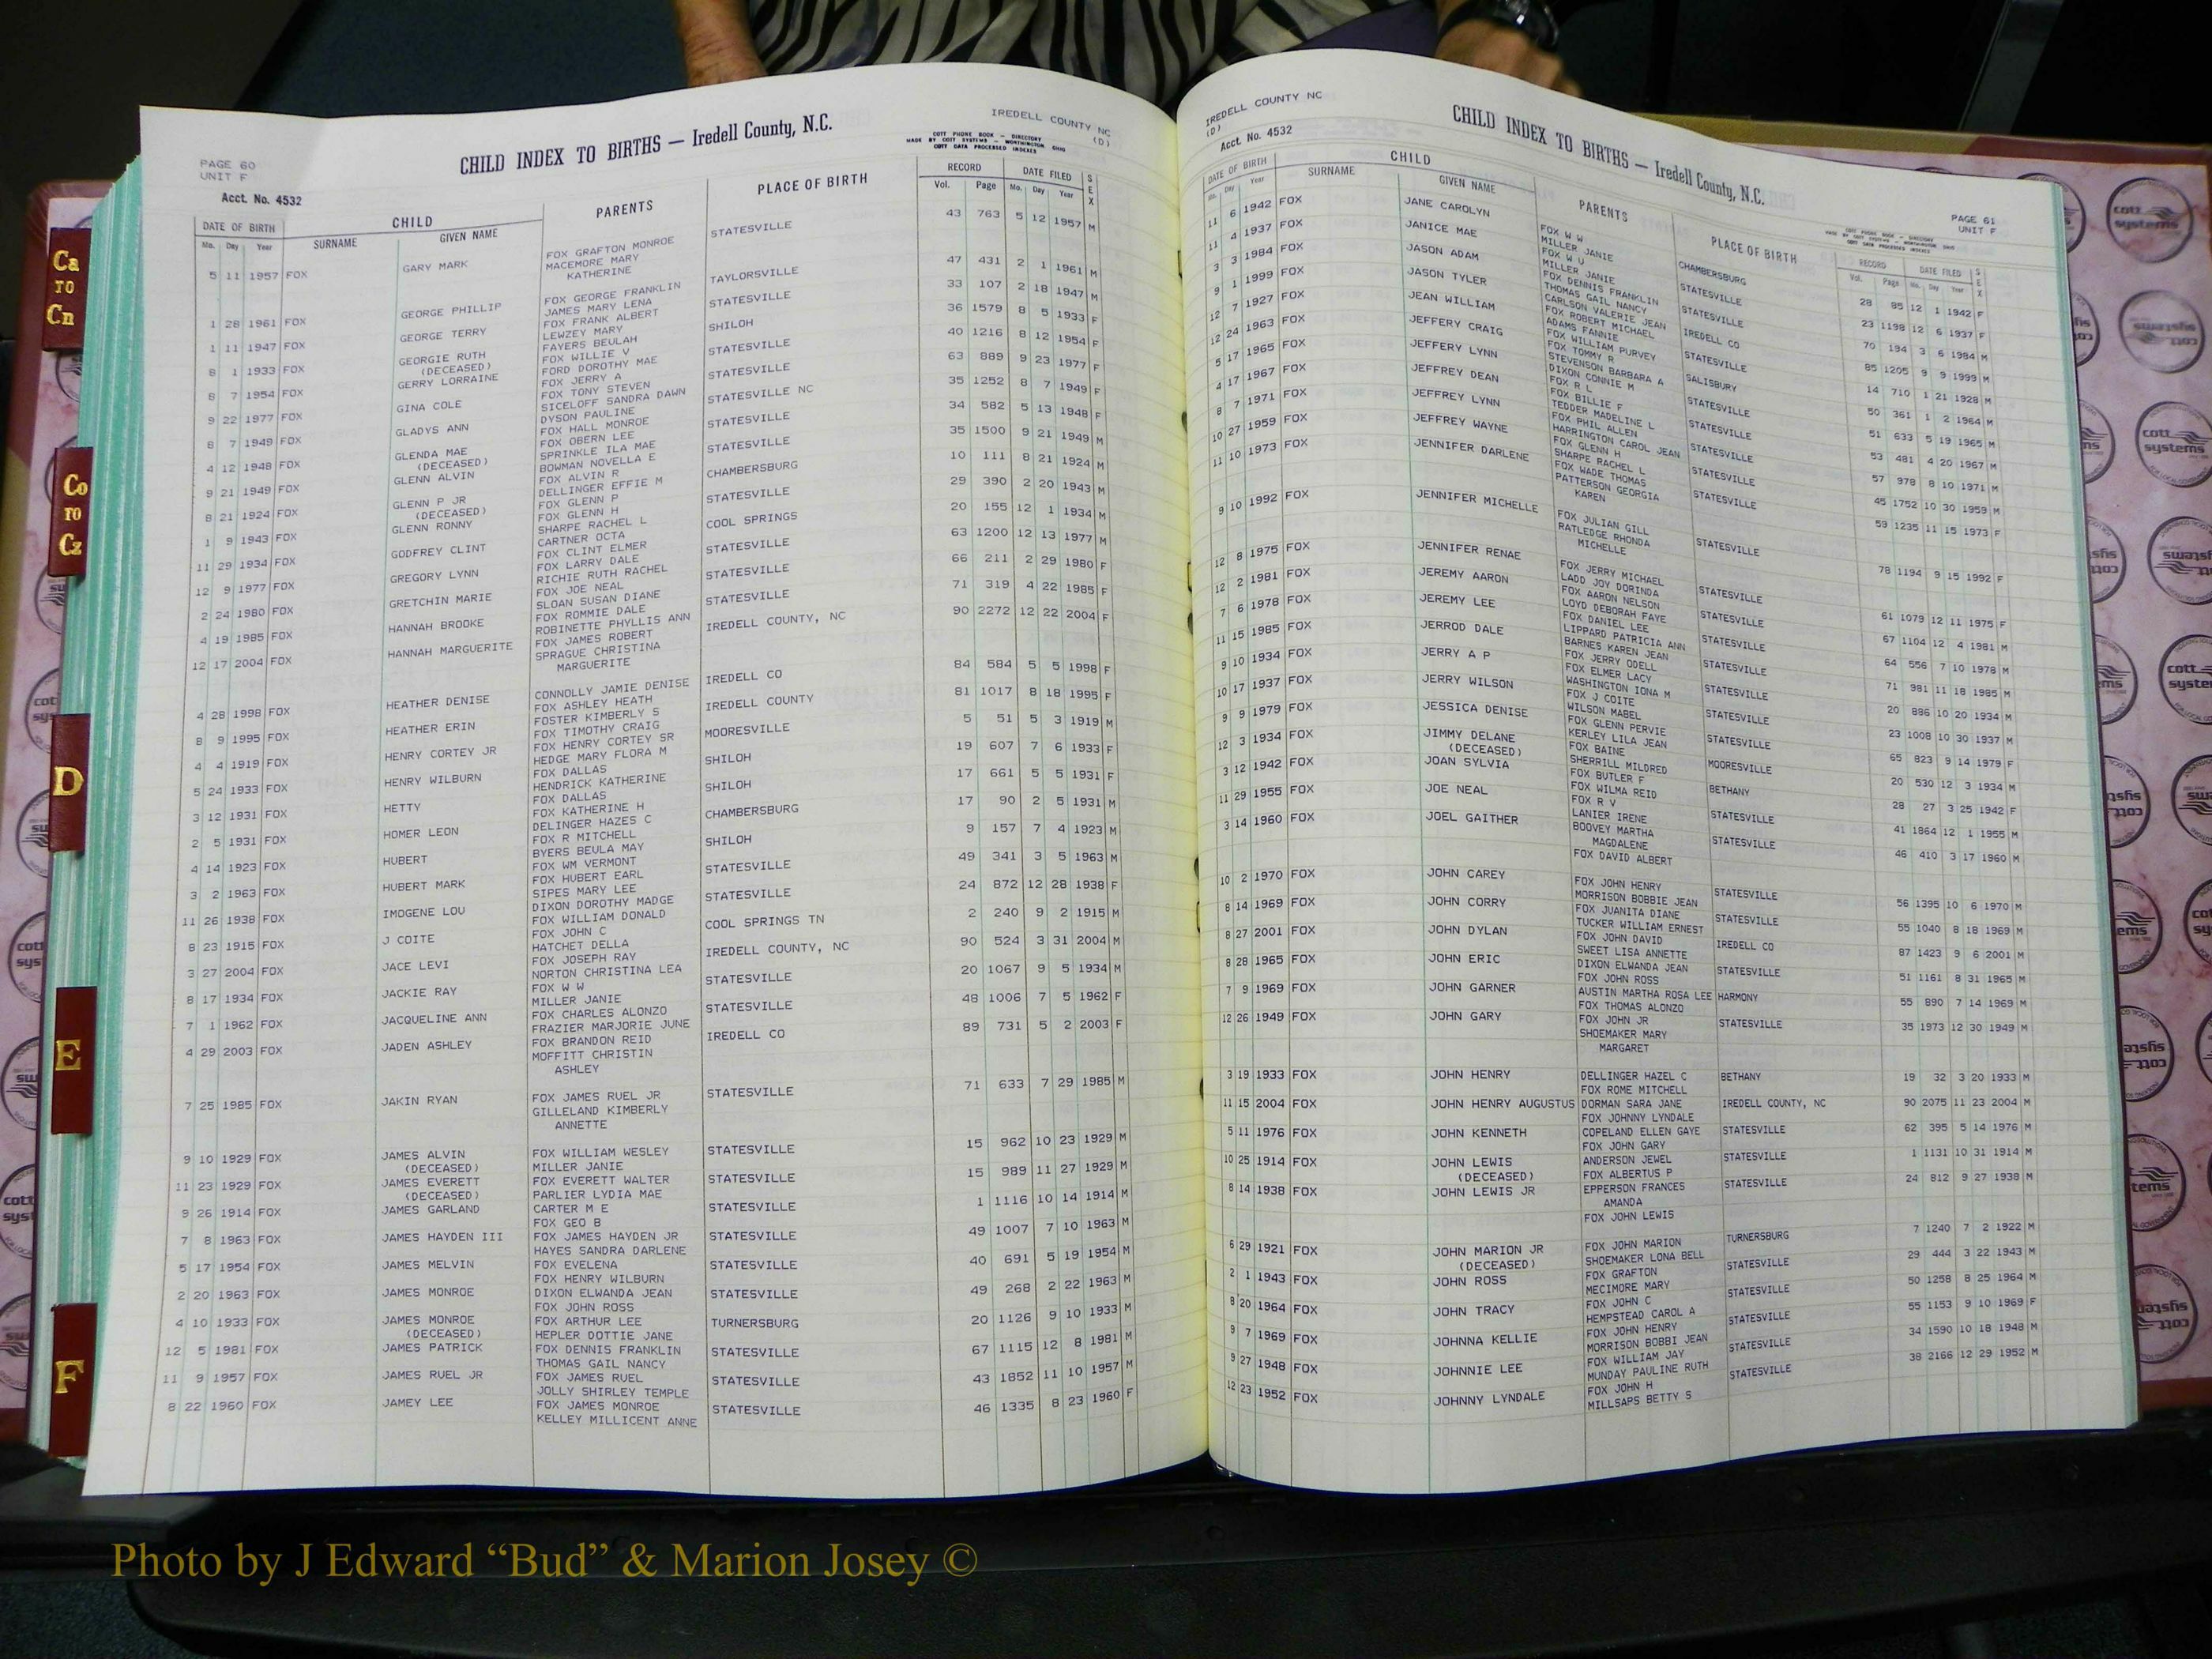 IREDELL COUNTY NC
(D)
CHILD INDEX TO BIRTHS — Iredell County, N.C.
COTT PHONE BOOK — DIRECTORY
MADE BY COTT SYSTEMS — WORTHINGTON OHIO
COTT DATA PROCESSED INDEXES
PAGE 60
UNIT F
Acct. No. 4532
DATE OF BIRTH CHILD PARENTS PLACE OF BIRTH RECORD DATE FILED SEX
Mo. Day Year SURNAME GIVEN NAME Vol. Page Mo. Day Year
5 11 1957 FOX GARY MARK FOX GRAFTON MONROE STATESVILLE 43 763 5 12 1957 M
MACEMORE MARY
KATHERINE
1 28 1961 FOX GEORGE PHILLIP FOX GEORGE FRANKLIN TAYLORSVILLE 47 431 2 1 1961 M
JAMES MARY LENA
1 11 1947 FOX GEORGE TERRY FOX FRANK ALBERT STATESVILLE 33 107 2 18 1947 M
LEWZEY MARY
8 1 1933 FOX GEORGIE RUTH FAYERS BEULAH SHILOH 36 1579 8 5 1933 F
(DECEASED) FOX WILLIE V
8 7 1954 FOX GERRY LORRAINE FORD DOROTHY MAE STATESVILLE 40 1216 8 12 1954 F
FOX JERRY A
9 22 1977 FOX GINA COLE FOX TONY STEVEN STATESVILLE 63 889 9 23 1977 F
SICELOFF SANDRA DAWN
8 7 1949 FOX GLADYS ANN DYSON PAULINE STATESVILLE NC 35 1252 8 7 1949 F
FOX HALL MONROE
4 12 1948 FOX GLENDA MAE FOX OBERN LEE STATESVILLE 34 582 5 13 1948 F
(DECEASED) SPRINKLE ILA MAE
9 21 1949 FOX GLENN ALVIN BOWMAN NOVELLA E STATESVILLE 35 1500 9 21 1949 M
FOX ALVIN R
8 21 1924 FOX GLENN P JR DELLINGER EFFIE M CHAMBERSBURG 10 111 8 21 1924 M
(DECEASED) FOX GLENN P
1 9 1943 FOX GLENN RONNY FOX GLENN H STATESVILLE 29 390 2 20 1943 M
SHARPE RACHEL L
11 29 1934 FOX GODFREY CLINT CARTNER OCTA COOL SPRINGS 20 155 12 1 1934 M
FOX CLINT ELMER
12 9 1977 FOX GREGORY LYNN FOX LARRY DALE STATESVILLE 63 1200 12 13 1977 M
RICHIE RUTH RACHEL
2 24 1980 FOX GRETCHIN MARIE FOX JOE NEAL STATESVILLE 66 211 2 29 1980 F
SLOAN SUSAN DIANE
4 19 1985 FOX HANNAH BROOKE FOX ROMMIE DALE STATESVILLE 71 319 4 22 1985 F
ROBINETTE PHYLLIS ANN
12 17 2004 FOX HANNAH MARGUERITE FOX JAMES ROBERT IREDELL COUNTY, NC 90 2272 12 22 2004 F
SPRAGUE CHRISTINA
MARGUERITE
4 28 1998 FOX HEATHER DENISE CONNOLLY JAMIE DENISE IREDELL CO 84 584 5 5 1998 F
FOX ASHLEY HEATH
8 9 1995 FOX HEATHER ERIN FOSTER KIMBERLY S IREDELL COUNTY 81 1017 8 18 1995 F
FOX TIMOTHY CRAIG
4 4 1919 FOX HENRY CORTEY JR FOX HENRY CORTEY SR MOORESVILLE 5 51 5 3 1919 M
HEDGE MARY FLORA M
5 24 1933 FOX HENRY WILBURN FOX DALLAS SHILOH 19 607 7 6 1933 F
HENDRICK KATHERINE
3 12 1931 FOX HETTY FOX DALLAS SHILOH 17 661 5 5 1931 F
FOX KATHERINE H
2 5 1931 FOX HOMER LEON DELINGER HAZES C CHAMBERSBURG 17 90 2 5 1931 M
FOX R MITCHELL
4 14 1923 FOX HUBERT BYERS BEULA MAY SHILOH 9 157 7 4 1923 M
FOX WM VERMONT
3 2 1963 FOX HUBERT MARK FOX HUBERT EARL STATESVILLE 49 341 3 5 1963 M
SIPES MARY LEE
11 26 1938 FOX IMOGENE LOU DIXON DOROTHY MADGE STATESVILLE 24 872 12 28 1938 F
FOX WILLIAM DONALD
8 23 1915 FOX J COITE FOX JOHN C COOL SPRINGS TN 2 240 9 2 1915 M
HATCHET DELLA
3 27 2004 FOX JACE LEVI FOX JOSEPH RAY IREDELL COUNTY, NC 90 524 3 31 2004 M
NORTON CHRISTINA LEA
8 17 1934 FOX JACKIE RAY FOX W W STATESVILLE 20 1067 9 5 1934 M
MILLER JANIE
7 1 1962 FOX JACQUELINE ANN FOX CHARLES ALONZO STATESVILLE 48 1006 7 5 1962 F
FRAZIER MARJORIE JUNE
4 29 2003 FOX JADEN ASHLEY FOX BRANDON REID IREDELL CO 89 731 5 2 2003 F
MOFFITT CHRISTIN
ASHLEY
7 25 1985 FOX JAKIN RYAN FOX JAMES RUEL JR STATESVILLE 71 633 7 29 1985 M
GILLELAND KIMBERLY
ANNETTE
9 10 1929 FOX JAMES ALVIN FOX WILLIAM WESLEY STATESVILLE 15 962 10 23 1929 M
(DECEASED) MILLER JANIE
11 23 1929 FOX JAMES EVERETT FOX EVERETT WALTER STATESVILLE 15 989 11 27 1929 M
(DECEASED) PARLIER LYDIA MAE
9 26 1914 FOX JAMES GARLAND CARTER M E STATESVILLE 1 1116 10 14 1914 M
FOX GEO B
7 8 1963 FOX JAMES HAYDEN III FOX JAMES HAYDEN JR STATESVILLE 49 1007 7 10 1963 M
HAYES SANDRA DARLENE
5 17 1954 FOX JAMES MELVIN FOX EVELENA STATESVILLE 40 691 5 19 1954 M
FOX HENRY WILBURN
2 20 1963 FOX JAMES MONROE DIXON ELWANDA JEAN STATESVILLE 49 268 2 22 1963 M
FOX JOHN ROSS
4 10 1933 FOX JAMES MONROE FOX ARTHUR LEE TURNERSBURG 20 1126 9 10 1933 M
(DECEASED) HEPLER DOTTIE JANE
12 5 1981 FOX JAMES PATRICK FOX DENNIS FRANKLIN STATESVILLE 67 1115 12 8 1981 M
THOMAS GAIL NANCY
11 9 1957 FOX JAMES RUEL JR FOX JAMES RUEL STATESVILLE 43 1852 11 10 1957 M
JOLLY SHIRLEY TEMPLE
8 22 1960 FOX JAMEY LEE FOX JAMES MONROE STATESVILLE 46 1335 8 23 1960 F
KELLEY MILLICENT ANNE
IREDELL COUNTY NC
(D)
Acct. No. 4532
CHILD INDEX TO BIRTHS — Iredell County, N.C.
PAGE 61
UNIT F
COTT PHONE BOOK — DIRECTORY
MADE BY COTT SYSTEMS — WORTHINGTON OHIO
COTT DATA PROCESSED INDEXES
DATE OF BIRTH CHILD PARENTS PLACE OF BIRTH RECORD DATE FILED SEX
Mo. Day Year SURNAME GIVEN NAME Vol. Page Mo. Day Year
11 6 1942 FOX JANE CAROLYN FOX W W CHAMBERSBURG 28 85 12 1 1942 F
MILLER JANIE
11 4 1937 FOX JANICE MAE FOX W U STATESVILLE 23 1198 12 6 1937 F
MILLER JANIE
3 3 1984 FOX JASON ADAM FOX DENNIS FRANKLIN STATESVILLE 70 194 3 6 1984 M
THOMAS GAIL NANCY
9 1 1999 FOX JASON TYLER CARLSON VALERIE JEAN IREDELL CO 85 1205 9 9 1999 M
FOX ROBERT MICHAEL
12 7 1927 FOX JEAN WILLIAM ADAMS FANNIE STATESVILLE 14 710 1 21 1928 M
FOX WILLIAM PURVEY
12 24 1963 FOX JEFFERY CRAIG FOX TOMMY R SALISBURY 50 361 1 2 1964 M
STEVENSON BARBARA A
5 17 1965 FOX JEFFERY LYNN DIXON CONNIE M STATESVILLE 51 633 5 19 1965 M
FOX R L
4 17 1967 FOX JEFFREY DEAN FOX BILLIE F STATESVILLE 53 481 4 20 1967 M
TEDDER MADELINE L
8 7 1971 FOX JEFFREY LYNN FOX PHIL ALLEN STATESVILLE 57 978 8 10 1971 M
HARRINGTON CAROL JEAN
10 27 1959 FOX JEFFREY WAYNE FOX GLENN H STATESVILLE 45 1752 10 30 1959 M
SHARPE RACHEL L
11 10 1973 FOX JENNIFER DARLENE FOX WADE THOMAS STATESVILLE 59 1235 11 15 1973 F
PATTERSON GEORGIA
KAREN
9 10 1992 FOX JENNIFER MICHELLE FOX JULIAN GILL STATESVILLE 78 1194 9 15 1992 F
RATLEDGE RHONDA
MICHELLE
12 8 1975 FOX JENNIFER RENAE FOX JERRY MICHAEL STATESVILLE 61 1079 12 11 1975 F
LADD JOY DORINDA
12 2 1981 FOX JEREMY AARON FOX AARON NELSON STATESVILLE 67 1104 12 4 1981 M
LOYD DEBORAH FAYE
7 6 1978 FOX JEREMY LEE FOX DANIEL LEE STATESVILLE 64 556 7 10 1978 M
LIPPARD PATRICIA ANN
11 15 1985 FOX JERROD DALE BARNES KAREN JEAN STATESVILLE 71 981 11 18 1985 M
FOX JERRY ODELL
9 10 1934 FOX JERRY A P FOX ELMER LACY STATESVILLE 20 886 10 20 1934 M
WASHINGTON IONA M
10 17 1937 FOX JERRY WILSON FOX J COITE STATESVILLE 23 1008 10 30 1937 M
WILSON MABEL
9 9 1979 FOX JESSICA DENISE FOX GLENN PERVIE STATESVILLE 65 823 9 14 1979 F
KERLEY LILA JEAN
12 3 1934 FOX JIMMY DELANE FOX BAINE MOORESVILLE 20 530 12 3 1934 M
(DECEASED) SHERRILL MILDRED
3 12 1942 FOX JOAN SYLVIA FOX BUTLER F BETHANY 28 27 3 25 1942 F
FOX WILMA REID
11 29 1955 FOX JOE NEAL FOX R V STATESVILLE 41 1864 12 1 1955 M
LANIER IRENE
3 14 1960 FOX JOEL GAITHER BOOVEY MARTHA STATESVILLE 46 410 3 17 1960 M
MAGDALENE
FOX DAVID ALBERT
10 2 1970 FOX JOHN CAREY FOX JOHN HENRY STATESVILLE 56 1395 10 6 1970 M
MORRISON BOBBIE JEAN
8 14 1969 FOX JOHN CORRY FOX JUANITA DIANE STATESVILLE 55 1040 8 18 1969 M
TUCKER WILLIAM ERNEST
8 27 2001 FOX JOHN DYLAN FOX JOHN DAVID IREDELL CO 87 1423 9 6 2001 M
SWEET LISA ANNETTE
8 28 1965 FOX JOHN ERIC DIXON ELWANDA JEAN STATESVILLE 51 1161 8 31 1965 M
FOX JOHN ROSS
7 9 1969 FOX JOHN GARNER AUSTIN MARTHA ROSA LEE HARMONY 55 890 7 14 1969 M
FOX THOMAS ALONZO
12 26 1949 FOX JOHN GARY FOX JOHN JR STATESVILLE 35 1973 12 30 1949 M
SHOEMAKER MARY
MARGARET
3 19 1933 FOX JOHN HENRY DELLINGER HAZEL C BETHANY 19 32 3 20 1933 M
FOX ROME MITCHELL
11 15 2004 FOX JOHN HENRY AUGUSTUS DORMAN SARA JANE IREDELL COUNTY, NC 90 2075 11 23 2004 M
FOX JOHNNY LYNDALE
5 11 1976 FOX JOHN KENNETH COPELAND ELLEN GAYE STATESVILLE 62 395 5 14 1976 M
FOX JOHN GARY
10 25 1914 FOX JOHN LEWIS ANDERSON JEWEL STATESVILLE 1 1131 10 31 1914 M
(DECEASED) FOX ALBERTUS P
8 14 1938 FOX JOHN LEWIS JR EPPERSON FRANCES STATESVILLE 24 812 9 27 1938 M
AMANDA
FOX JOHN LEWIS
6 29 1921 FOX JOHN MARION JR FOX JOHN MARION TURNERSBURG 7 1240 7 2 1922 M
(DECEASED) SHOEMAKER LONA BELL
2 1 1943 FOX JOHN ROSS FOX GRAFTON STATESVILLE 29 444 3 22 1943 M
MECIMORE MARY
8 20 1964 FOX JOHN TRACY FOX JOHN C STATESVILLE 50 1258 8 25 1964 M
HEMPSTEAD CAROL A
9 7 1969 FOX JOHNNA KELLIE FOX JOHN HENRY STATESVILLE 55 1153 9 10 1969 F
MORRISON BOBBI JEAN
9 27 1948 FOX JOHNNIE LEE FOX WILLIAM JAY STATESVILLE 34 1590 10 18 1948 M
MUNDAY PAULINE RUTH
12 23 1952 FOX JOHNNY LYNDALE FOX JOHN H STATESVILLE 38 2166 12 29 1952 M
MILLSAPS BETTY S
Ca
TO
Cn
Co
TO
Cz
D
E
F
cott
systems
Photo by J Edward “Bud” & Marion Josey ©